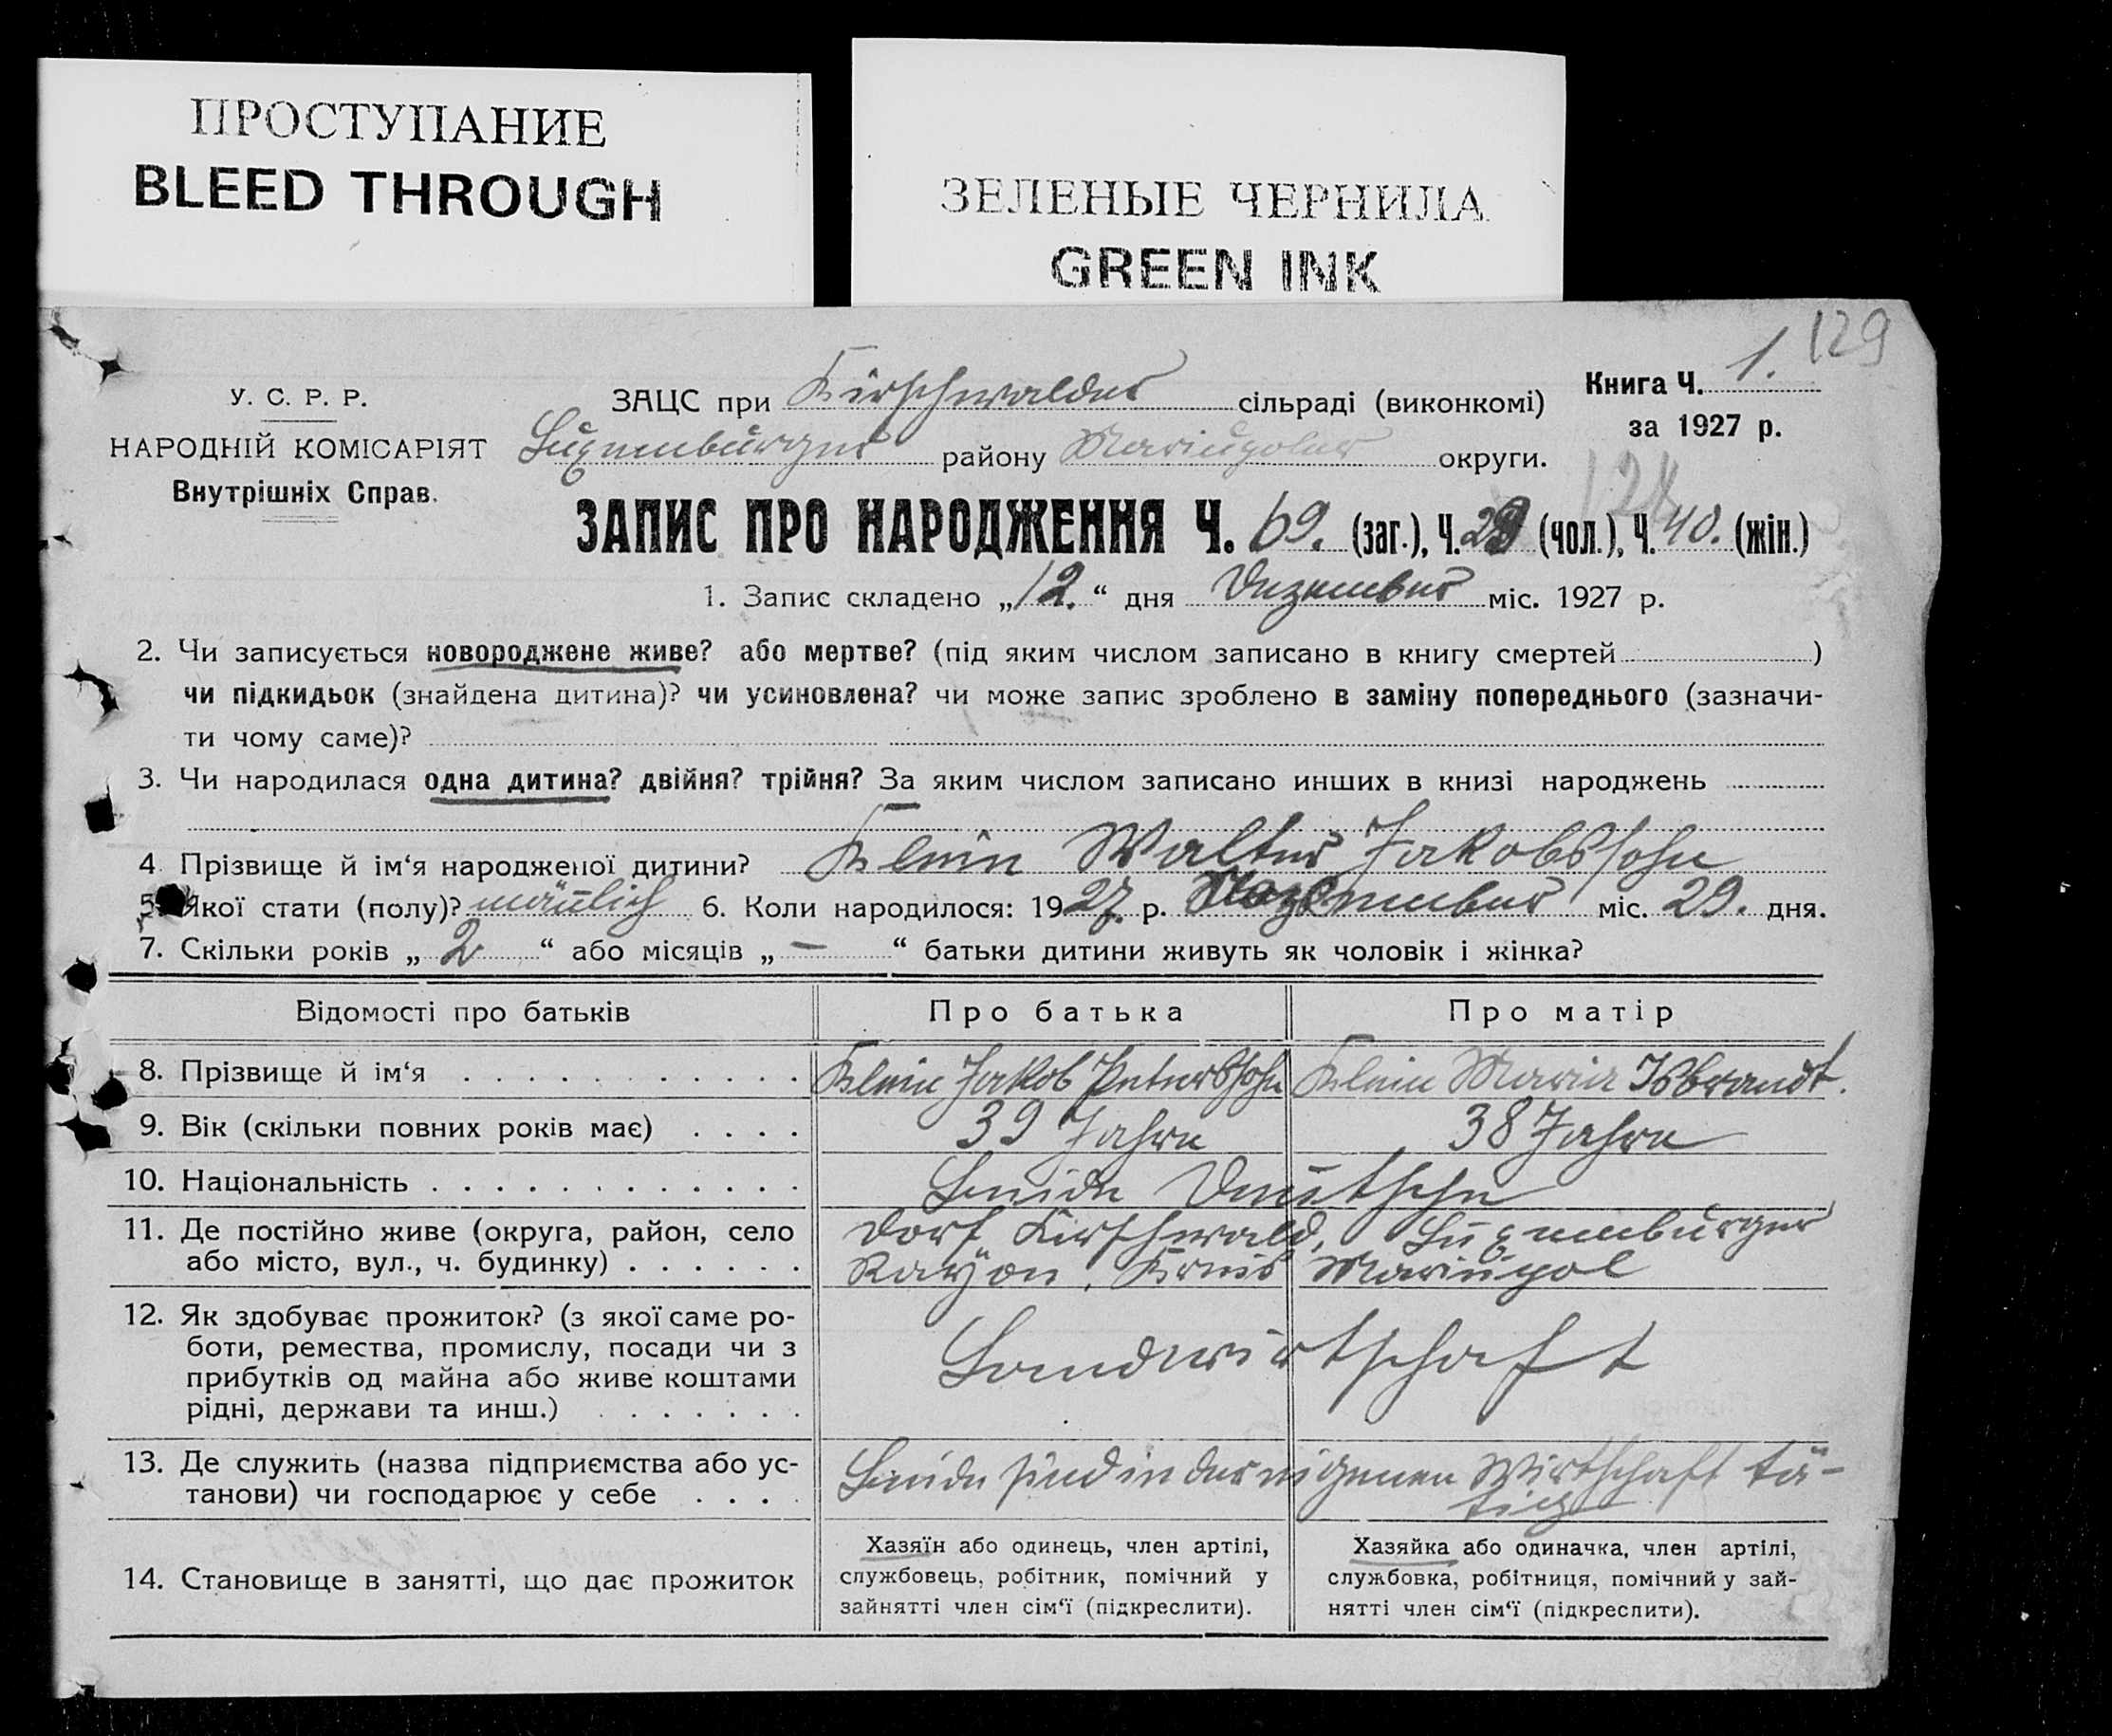 ПРОСТУПАНИЕ
BLEED THROUGH
ЗЕЛЕНЫЕ ЧЕРНИЛА
GREEN INK
129
У. С. Р. Р.
НАРОДНІЙ КОМІСАРІЯТ
Внутрішніх Справ.
ЗАЦС при Kirschwalder сільраді (виконкомі)
Книга Ч. 1.
за 1927 р.
Luxemburger району Mariupoler округи.
ЗАПИС ПРО НАРОДЖЕННЯ Ч. 69. (заг.), Ч. 29 (чол.), Ч. 40. (жін.)
1. Запис складено „12.“ дня Dezember міс. 1927 р.
2. Чи записується новороджене живе? або мертве? (під яким числом записано в книгу смертей )
чи підкидьок (знайдена дитина)? чи усиновлена? чи може запис зроблено в заміну попереднього (зазначи-
ти чому саме)?
3. Чи народилася одна дитина? двійня? трійня? За яким числом записано инших в книзі народжень
4. Прізвище й ім‘я народженої дитини? Klein Walter Jakobssohn
5. Якої стати (полу)? mänlich 6. Коли народилося: 1927. р. міс. 29. дня.
7. Скільки років „ 2 “ або місяців „ — “ батьки дитини живуть як чоловік і жінка?
Відомості про батьків Про батька Про матір
8. Прізвище й ім‘я Klein Jakob Peterssohn Klein Maria Isbrandt.
9. Вік (скільки повних років має) 39 Jahre 38 Jahre
10. Національність Beide Deutsche
11. Де постійно живе (округа, район, село Dorf Kirschwald, Luxemburger
або місто, вул., ч. будинку) Rayon, Kreis Mariupol
12. Як здобуває прожиток? (з якої саме ро-
боти, ремества, промислу, посади чи з
прибутків од майна або живе коштами
рідні, держави та инш.) Landwirtschaft
13. Де служить (назва підприємства або ус- Beide sind in der eigenen Wirtschaft tä-
танови) чи господарює у себе tig
14. Становище в занятті, що дає прожиток
Хазяїн або одинець, член артілі,
службовець, робітник, помічний у
зайнятті член сім‘ї (підкреслити).
Хазяйка або одиначка, член артілі,
службовка, робітниця, помічний у зай-
нятті член сім‘ї (підкреслити).